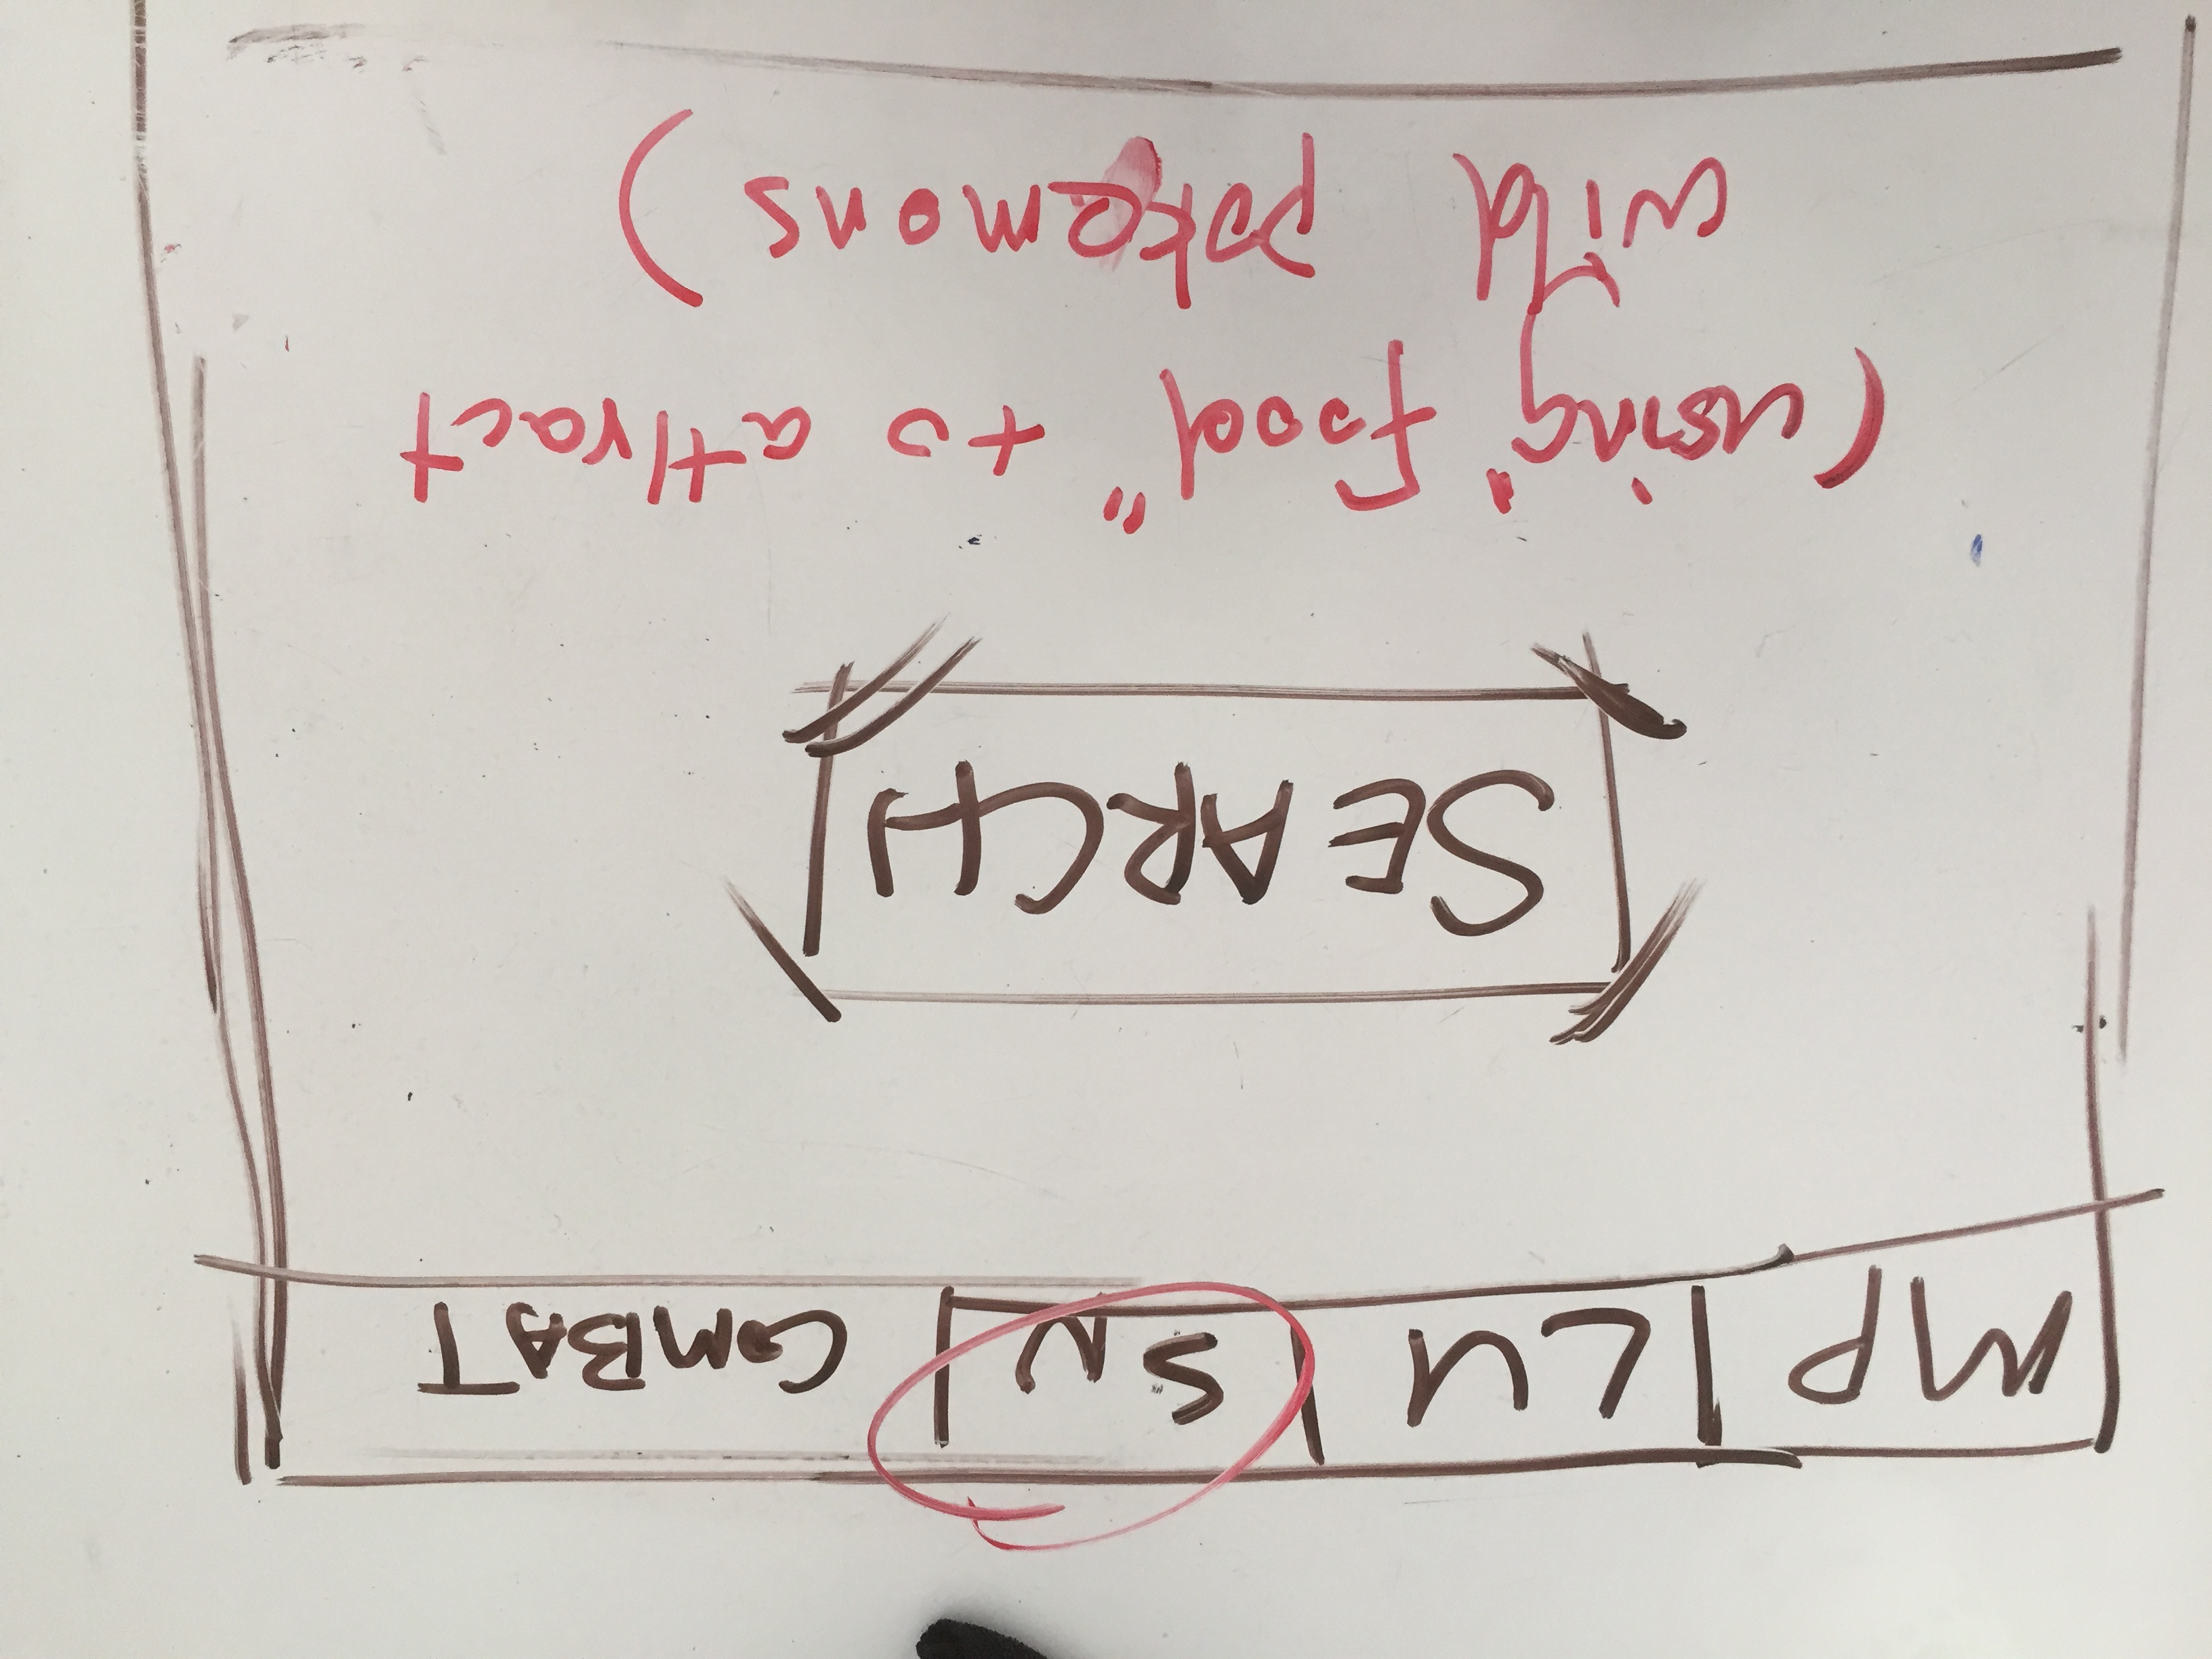 MP LU SN COMBAT
SEARCH
(using "food" to attract
wild pokemons)